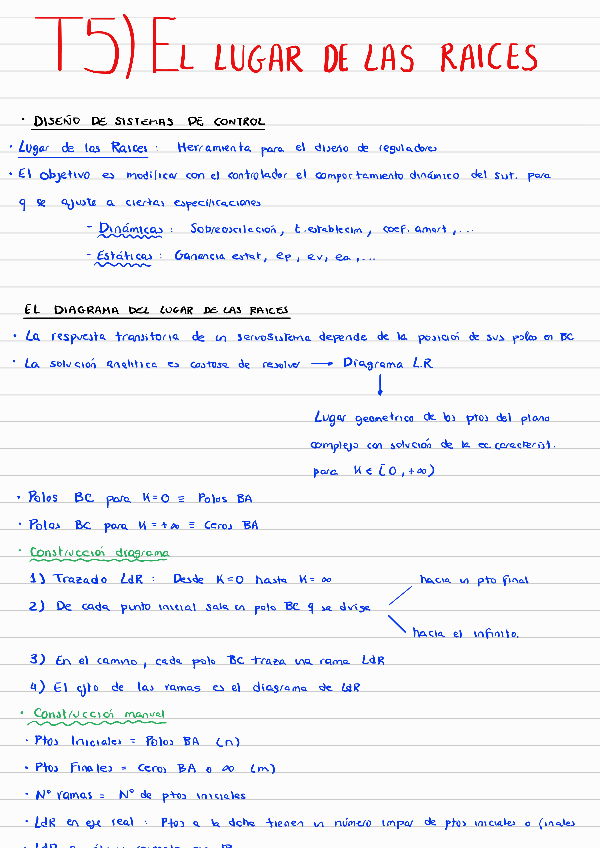 T5) EL LUGAR DE LAS RAICES
· DISEÑO DE SISTEMAS DE CONTROL
· Lugar de las Raices: Herramienta para el diseño de reguladores
· El objetivo es modificar con el controlador el comportamiento dinámico del sist. para
q se ajuste a ciertas especificaciones
- Dinámicas: Sobreoscilación, t.establecim, coef. amort,...
- Estáticas: Ganancia estat, ep, ev, ea,...
EL DIAGRAMA DEL LUGAR DE LAS RAICES
· La respuesta transitoria de un servosistema depende de la posición de sus polos en BC
· La solución analitica es costosa de resolver → Diagrama L.R
Lugar geometrico de los ptos del plano
complejo con solución de la ec característ.
para K ∈ [0,+∞)
· Polos BC para K=0 ≡ Polos BA
· Polos BC para K=+∞ ≡ Ceros BA
· Construcción diagrama
1) Trazado LdR: Desde K=0 hasta K=∞
hacia un pto final
2) De cada punto inicial sale un polo BC q se divige
hacia el infinito.
3) En el camino, cada polo BC traza una rama LdR
4) El cjto de las ramas es el diagrama de LdR
· Construcción manual
· Ptos Iniciales = Polos BA (n)
· Ptos Finales = Ceros BA o ∞ (m)
· Nº ramas = Nº de ptos iniciales
· LdR en eje real: Ptos a la dcha tienen un número impar de ptos iniciales o finales
· LdR